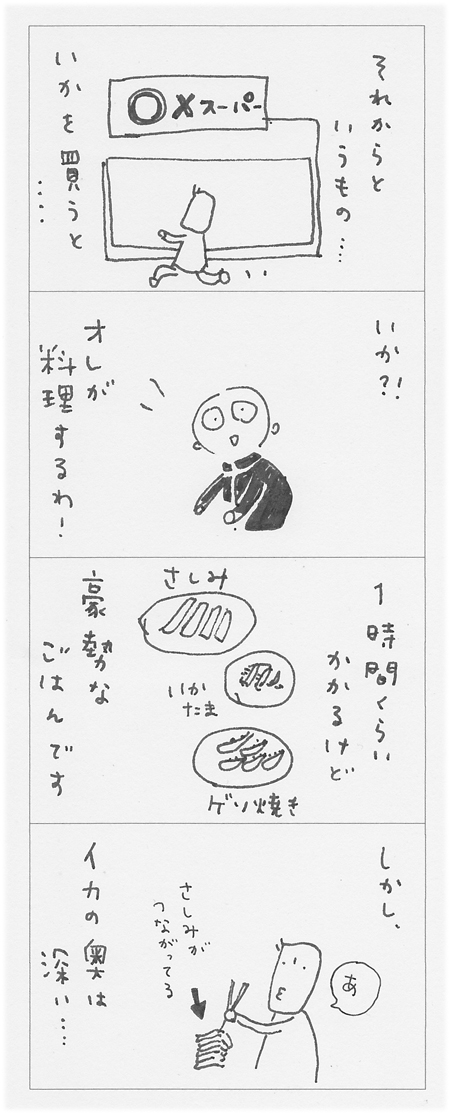 それからと
いうもの…
〇Xスーパー
いかを買うと
……
いか?!
オレが
料理するわ!
1時間くらい
かかるけど
さしみ
いか
たま
ゲソ焼き
豪勢な
ごはんです
しかし、
あ
さしみが
つながってる
イカの奥は
深い…